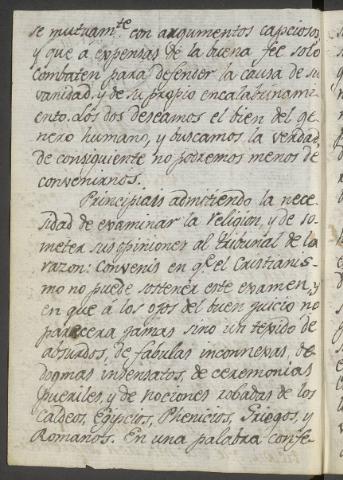 se mutuam.te con argumentos capciosos
y que à expensas de la buena fee solo
combaten para defender la causa de su
vanidad, y de su propio encalabrinami
ento. Los dos deseamos el bien del ge
nero humano, y buscamos la verdad,
de consiguiente no podremos menos de
convenirnos.
Principiais admitiendo la nece
sidad de examinar la religion, y de so
meter sus opiniones al tribunal de la
razon: Convenis en q.e el Cristianis-
mo no puede sostener este examen, y
en que á los ojos del buen juicio no
parecera jamas sino un tegido de
absurdos, de fabulas inconnexas, de
dogmas insensatos, de ceremonias
pueriles, y de nociones robadas de los
Caldeos, Egipcios, Phenicios, Griegos, y
Romanos. En una palabra confe-